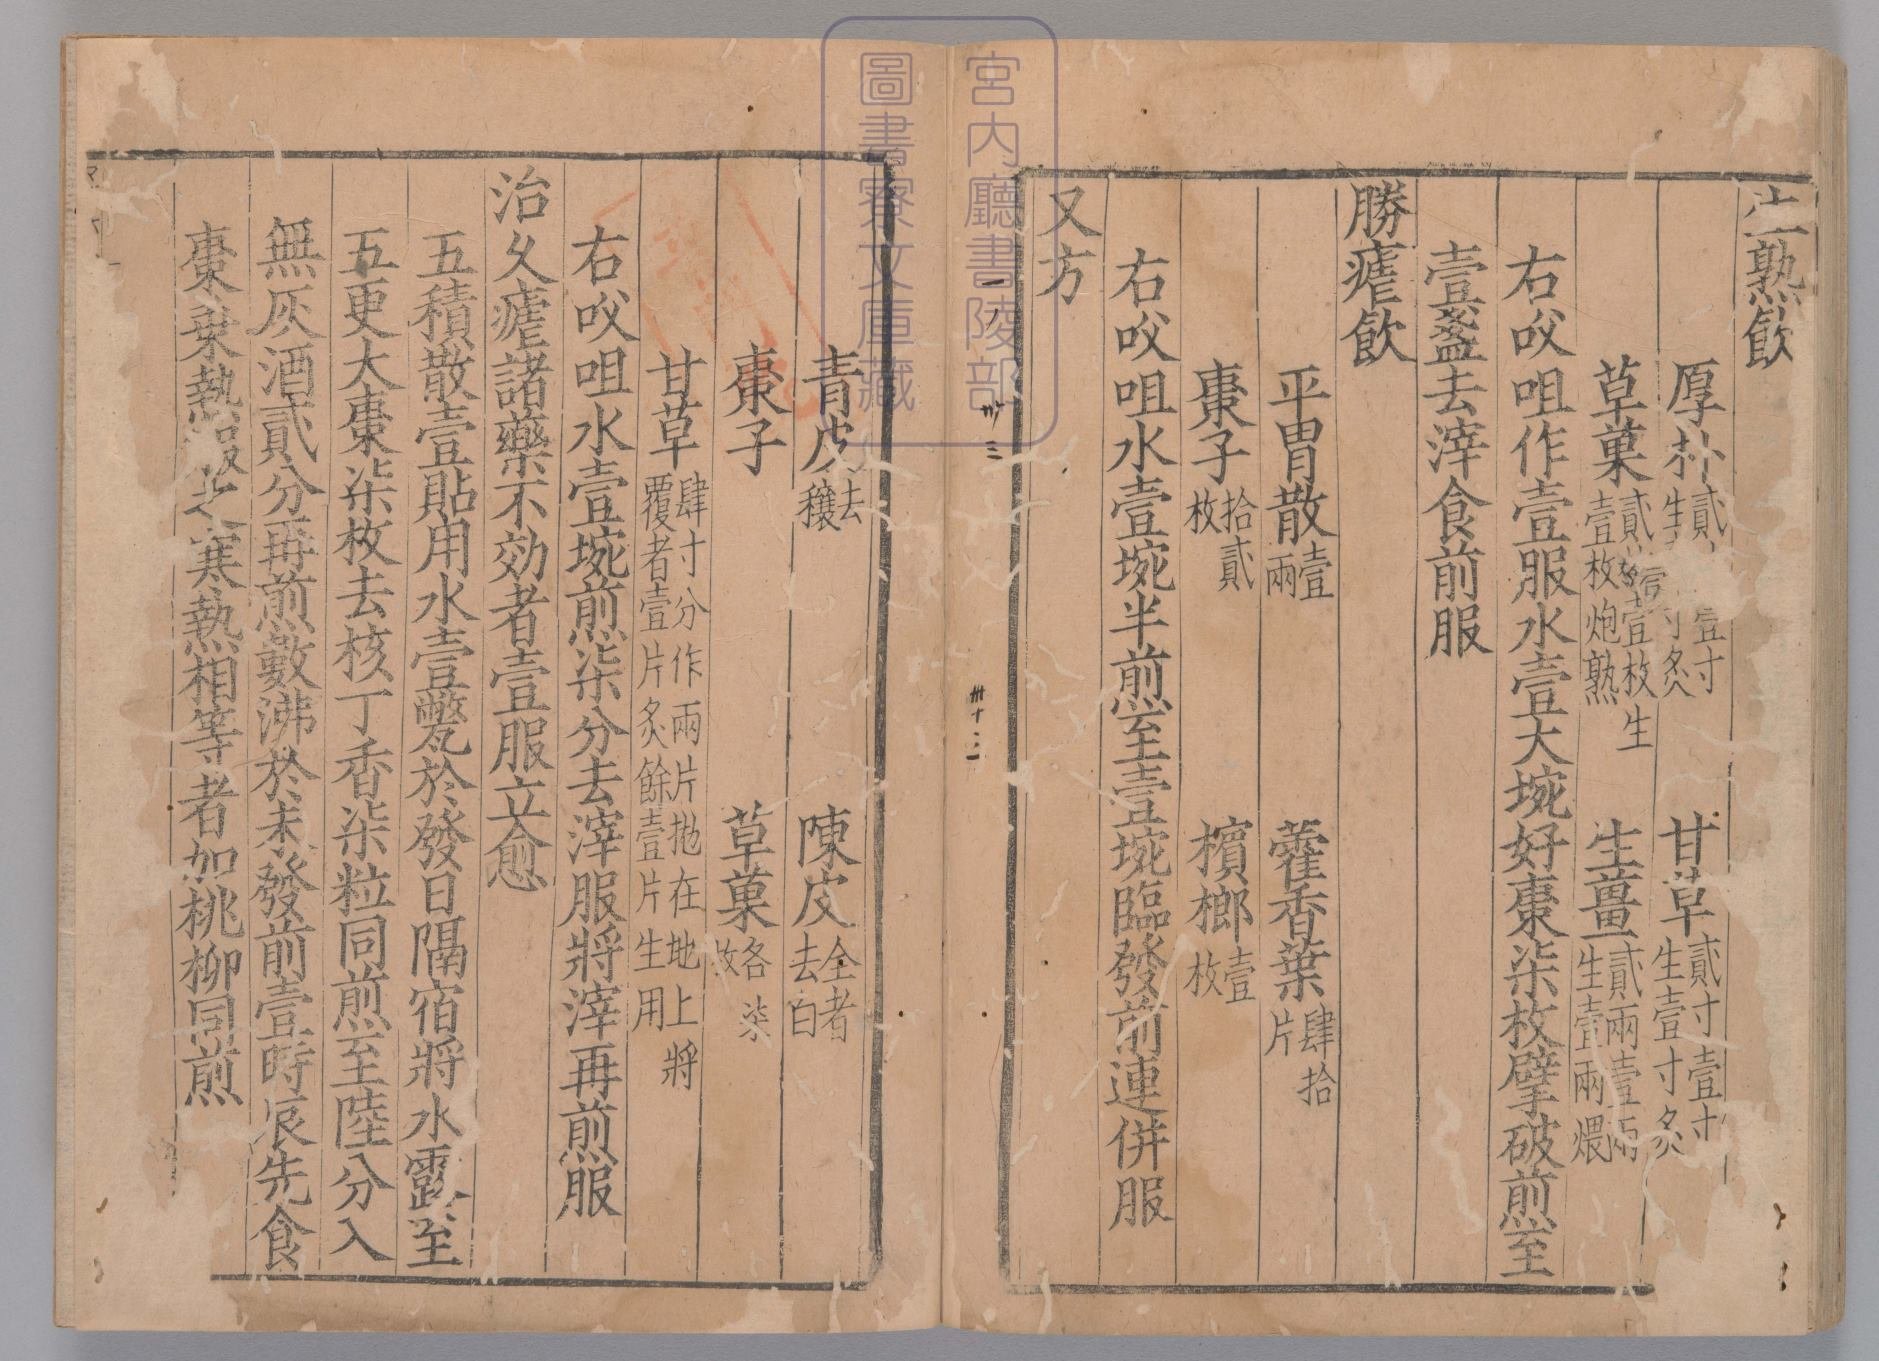 生熟飲
厚朴 貳寸壹寸生壹寸炙 甘草 貳寸壹寸生壹寸炙
草菓 貳枚壹枚生壹枚炮熟 生薑 貳兩壹兩生壹兩煨
右㕮咀作壹服水壹大埦好棗柒枚擘破煎至
壹盞去滓食前服
勝瘧飲
平胃散 壹兩 藿香葉 肆拾片
棗子 拾貳枚 檳榔 壹枚
右㕮咀水壹埦半煎至壹埦臨發前連併服
又方
青皮 去穰 陳皮 全者去白
棗子 草菓 各柒枚
甘草 肆寸分作兩片拋在地上將覆者壹片炙餘壹片生用
右㕮咀水壹埦煎柒分去滓服將滓再煎服
治久瘧諸藥不効者壹服立愈
五積散壹貼用水壹甏於發日隔宿將水露至
五更大棗柒枚去核丁香柒粒同煎至陸分入
無灰酒貳分再煎數沸於未發前壹時辰先食
棗乗熱服之寒熱相等者加桃柳同煎
宮内廳書陵部
圖書寮文庫藏